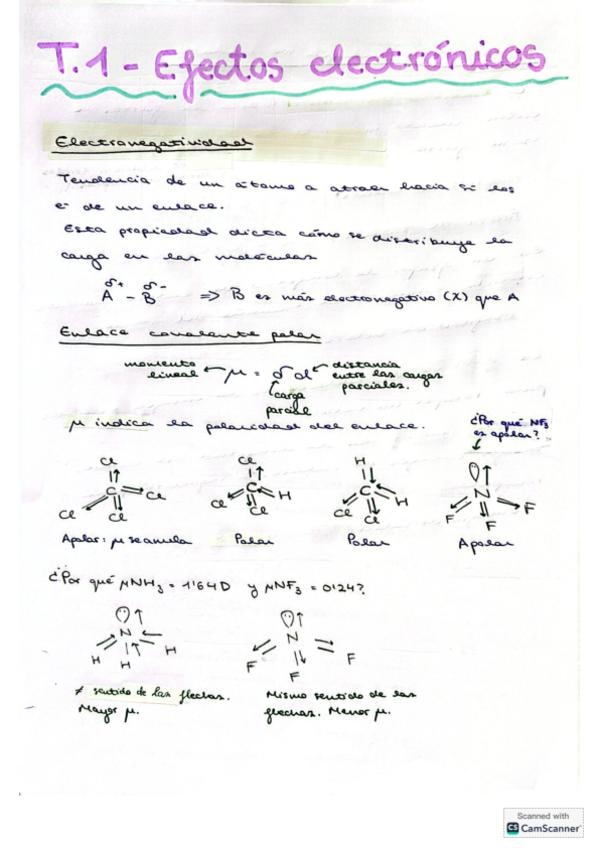 T.1 - Efectos electrónicos
Electronegatividad
Tendencia de un átomo a atraer hacia sí los
e⁻ de un enlace.
Esta propiedad dicta cómo se distribuye la
carga en las moléculas
δ+ δ-
A - B => B es más electronegativo (X) que A
Enlace covalente polar
momento lineal ← μ = δ d ← distancia entre las cargas parciales.
carga parcial
μ indica la polaridad del enlace.
¿Por qué NF₃ es apolar?
Cl C Cl Cl Cl
Cl C H Cl Cl
H C H Cl Cl
N F F F
Apolar: μ se anula
Polar
Polar
Apolar
¿Por qué μNH₃ = 1'64D y μNF₃ = 0'24?
N H H H
N F F F
≠ sentido de las flechas.
Mayor μ.
Mismo sentido de las
flechas. Menor μ.
Scanned with
CS CamScanner